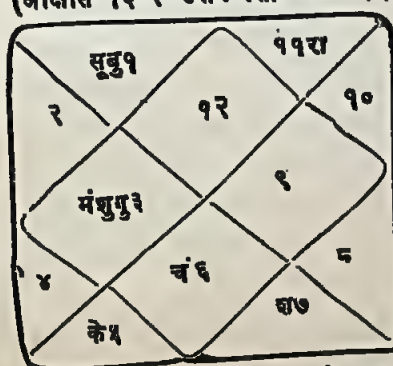 सूबु१
११रा
२
१२
१०
मंशुगु३
९
४
चं६
८
के५
श७